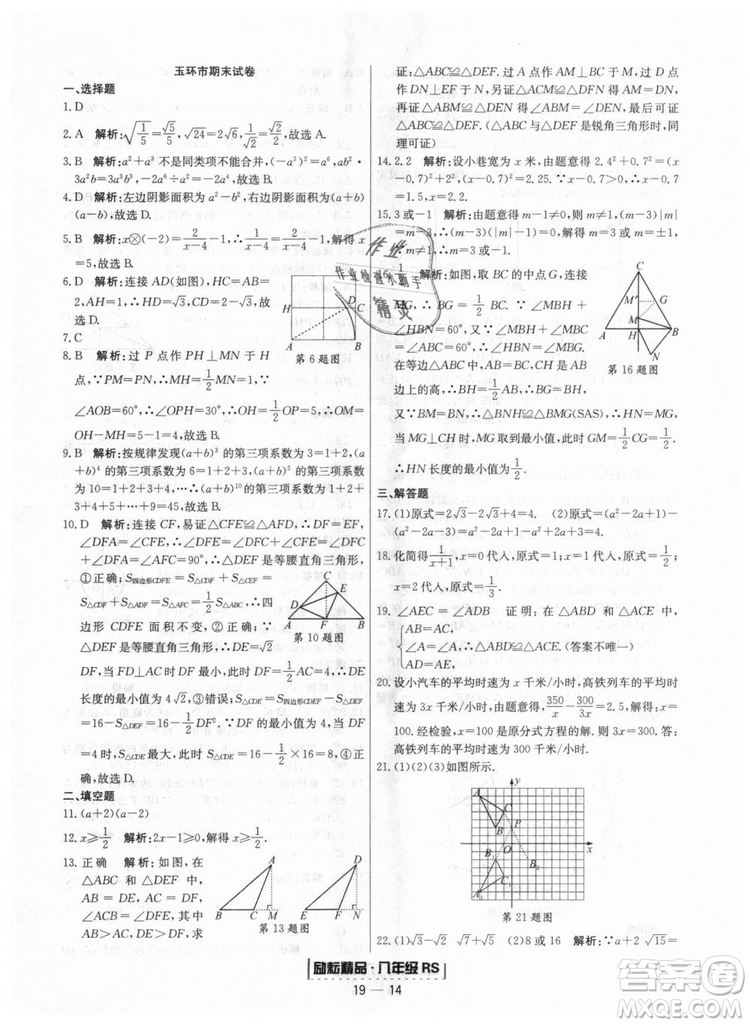 玉环市期末试卷
一、选择题
1. D
2. A 解析:√(1/5)=√5/5,√24=2√6,√(1/2)=√2/2,故选 A.
3. B 解析:a²+a³ 不是同类项不能合并,(-a³)²=a⁶,ab²·
3a²b=3a³b³,a⁶÷a²=a⁴,故选 B.
4. D 解析:左边阴影面积为 a²-b²,右边阴影面积为(a+b)
(a-b),故选 D.
5. B 解析:x⊗(-2)=2/(x-4)-1,∴1/(x-4)=2/(x-4)-1,解得 x
=5,故选 B.
6. D 解析:连接 AD(如图),HC=AB=
2,AH=1,∴HD=√3,CD=2-√3,
故选 D.
H D C
A B
第 6 题图
7. C
8. B 解析:过 P 点作 PH⊥MN 于 H
点,∵PM=PN,∴MH=NH=1/2,∵
∠AOB=60°,∴∠OPH=30°,∴OH=1/2OP=5,∴OM=
OH-MH=5-1=4,故选 B.
9. B 解析:按规律发现(a+b)³ 的第三项系数为 3=1+2,(a
+b)⁴ 的第三项系数为 6=1+2+3,(a+b)⁵ 的第三项系数
为 10=1+2+3+4,…∴(a+b)¹⁰的第三项系数为 1+2+
3+…+9=45,故选 B.
10. D 解析:连接 CF,易证△CFE≌△AFD,∴DF=EF,
∠DFA=∠CFE,∴∠DFE=∠DFC+∠CFE=∠DFC+
∠DFA=∠AFC=90°,∴△DEF 是等腰直角三角形,
①正确;∵S四边形CDFE=S△CDF+S△CFE=
S△CDF+S△ADF=S△ACF=1/2S△ABC,∴四
边形 CDFE 面积不变,②正确;∵
△DEF 是等腰直角三角形,∴DE=√2
C E D A F B
第 10 题图
DF,当 FD⊥AC 时,DF 最小,此时 DF=1/2AC=4,∴DE
长度的最小值为 4√2,③错误;∵S△CDE=S四边形CDFE-S△DEF
=16-S△DEF=16-1/2DF²,∵DF 最小值为 4,∴S△CDE=16-
S△DEF≤16-8=8,∴S△CDE 最大值=16-1/2×16=8,
④正确,故选 D.
二、填空题
11. (a+2)(a-2)
12. x≥1/2 解析:2x-1≥0,解得 x≥1/2.
13. 正确 解析:如图,在
△ABC 和△DEF 中,
∠ACB=∠DFE>90°,
AB=DE,AC=DF,求
A B C M D E F N
第 13 题图
证:△ABC≌△DEF. 证明:过点 A 作 AM⊥BC 于 M,过
点 D 作 DN⊥EF 于 N,先证△ACM≌△DFN,AM=DN,
再证△ABM≌△DEN,得∠B=∠E,最后可证
△ABC≌△DEF.(△ABC 与△DEF 是锐角三角形时,同
理可证)
14. 2.2 解析:设小巷宽为 x 米,由题意得 2.4²+0.7²=(x
-0.7)²+2²,(x-0.7)²=2.25,∵x-0.7>0,∴x-0.7=
1.5,x=2.2.
15. 3 或-1 解析:由题意得 m-1≠0,则(m-1)|m|
=m-1,∵m-1≠0,∴m=3 或 m=-1.
解析:如图,取 BC 的中点 G,连接
MG,∴BG=1/2BC,∵∠MBH+
∠HBN=60°,∠MBH+∠MBC=
60°,∴∠HBN=∠GBM,∵CH 是
等边△ABC 中 AB, CH 是 AB
边上的高,∴BH=1/2AB,∴BH=BG,
C M′ G M A H B N
第 16 题图
又∵BM=BN,∴△MBG≌△HBN(SAS),∴HN=MG,
当 MG⊥CH 时,MG 取到最小值,此时 GM=CH=1/2,
∴HN 长度的最小值为1/2.
三、解答题
17. (1)原式=2√3-2√3+4=4. (2)原式=(a²-2a-3)-
(a²-2a-3)=0.
18. 化简得1/(x+1),x=0 代入,原式=1;x=1 代入,原式=1/2;
x=2 代入,原式=1/3.
19. ∠AEC=∠ADB 证明:在△ABD 与△ACE 中,
AB=AC,
∠A=∠A,∴△ABD≌△ACE.(答案不唯一)
AD=AE,
20. 设小汽车的平均时速为 x 千米/小时,高铁列车的平均时
速为 3x 千米/小时,由题意得350/x-300/3x=2.5,解得 x=
100. 经检验,x=100 是原分式方程的解,3x=300. 答:
高铁列车的平均时速为 300 千米/小时.
21. (1)(2)(3)如图所示.
第 21 题图
22. (1)√3-√2 (2)8 或 16 解析:∵a±2√15=
励耘精品·八年级 RS
19 — 14
作业
作业检查小助手
精灵
答案圈
MXQE.COM